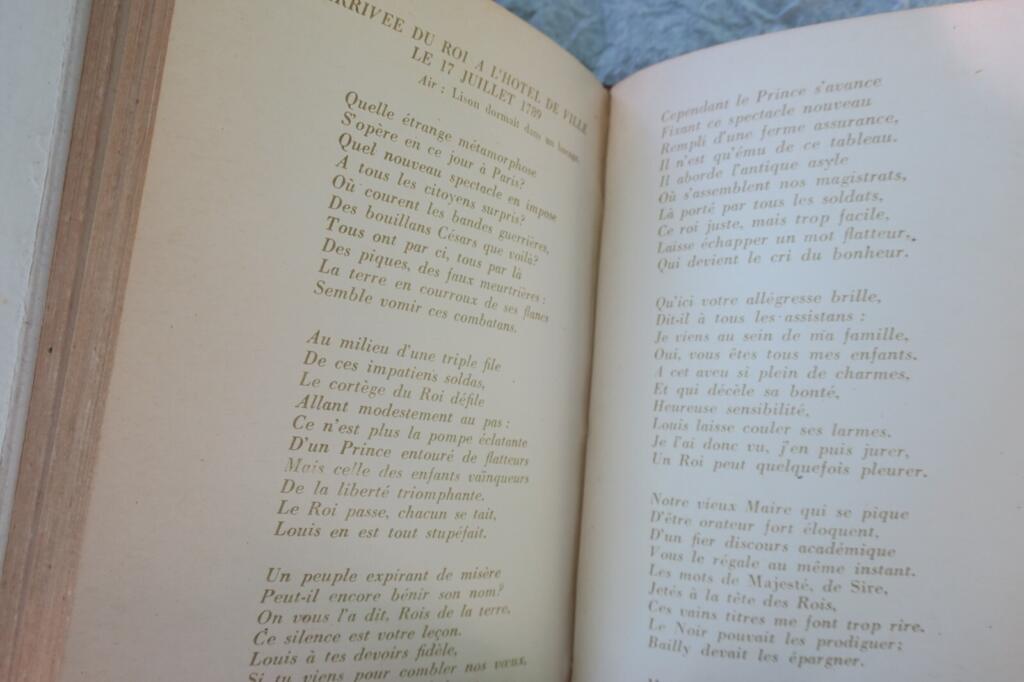 ARRIVEE DU ROI A L'HOTEL DE VILLE
LE 17 JUILLET 1789
Air : Lison dormait dans un bocage.
Quelle étrange métamorphose
S'opère en ce jour à Paris?
Quel nouveau spectacle en impose
A tous les citoyens surpris?
Où courent les bandes guerrières,
Des bouillans Césars que voilà?
Tous ont par ci, tous par là
Des piques, des faux meurtrières :
La terre en courroux de ses flancs
Semble vomir ces combatans.
Au milieu d'une triple file
De ces impatiens soldas,
Le cortège du Roi défile
Allant modestement au pas :
Ce n'est plus la pompe éclatante
D'un Prince entouré de flatteurs
Mais celle des enfants vainqueurs
De la liberté triomphante.
Le Roi passe, chacun se tait,
Louis en est tout stupéfait.
Un peuple expirant de misère
Peut-il encore bénir son nom?
On vous l'a dit, Rois de la terre,
Ce silence est votre leçon.
Louis à tes devoirs fidèle,
Si tu viens pour combler nos vœux,
Cependant le Prince s'avance
Fixant ce spectacle nouveau
Rempli d'une ferme assurance,
Il n'est qu'ému de ce tableau.
Il aborde l'antique asyle
Où s'assemblent nos magistrats,
Là porté par tous les soldats,
Ce roi juste, mais trop facile,
Laisse échapper un mot flatteur,
Qui devient le cri du bonheur.
Qu'ici votre allégresse brille,
Dit-il à tous les assistans :
Je viens au sein de ma famille,
Oui, vous êtes tous mes enfants.
A cet aveu si plein de charmes,
Et qui décèle sa bonté,
Heureuse sensibilité,
Louis laisse couler ses larmes.
Je l'ai donc vu, j'en puis jurer,
Un Roi peut quelquefois pleurer.
Notre vieux Maire qui se pique
D'être orateur fort éloquent,
D'un fier discours académique
Vous le régale au même instant.
Les mots de Majesté, de Sire,
Jetés à la tête des Rois,
Ces vains titres me font trop rire.
Le Noir pouvait les prodiguer;
Bailly devait les épargner.